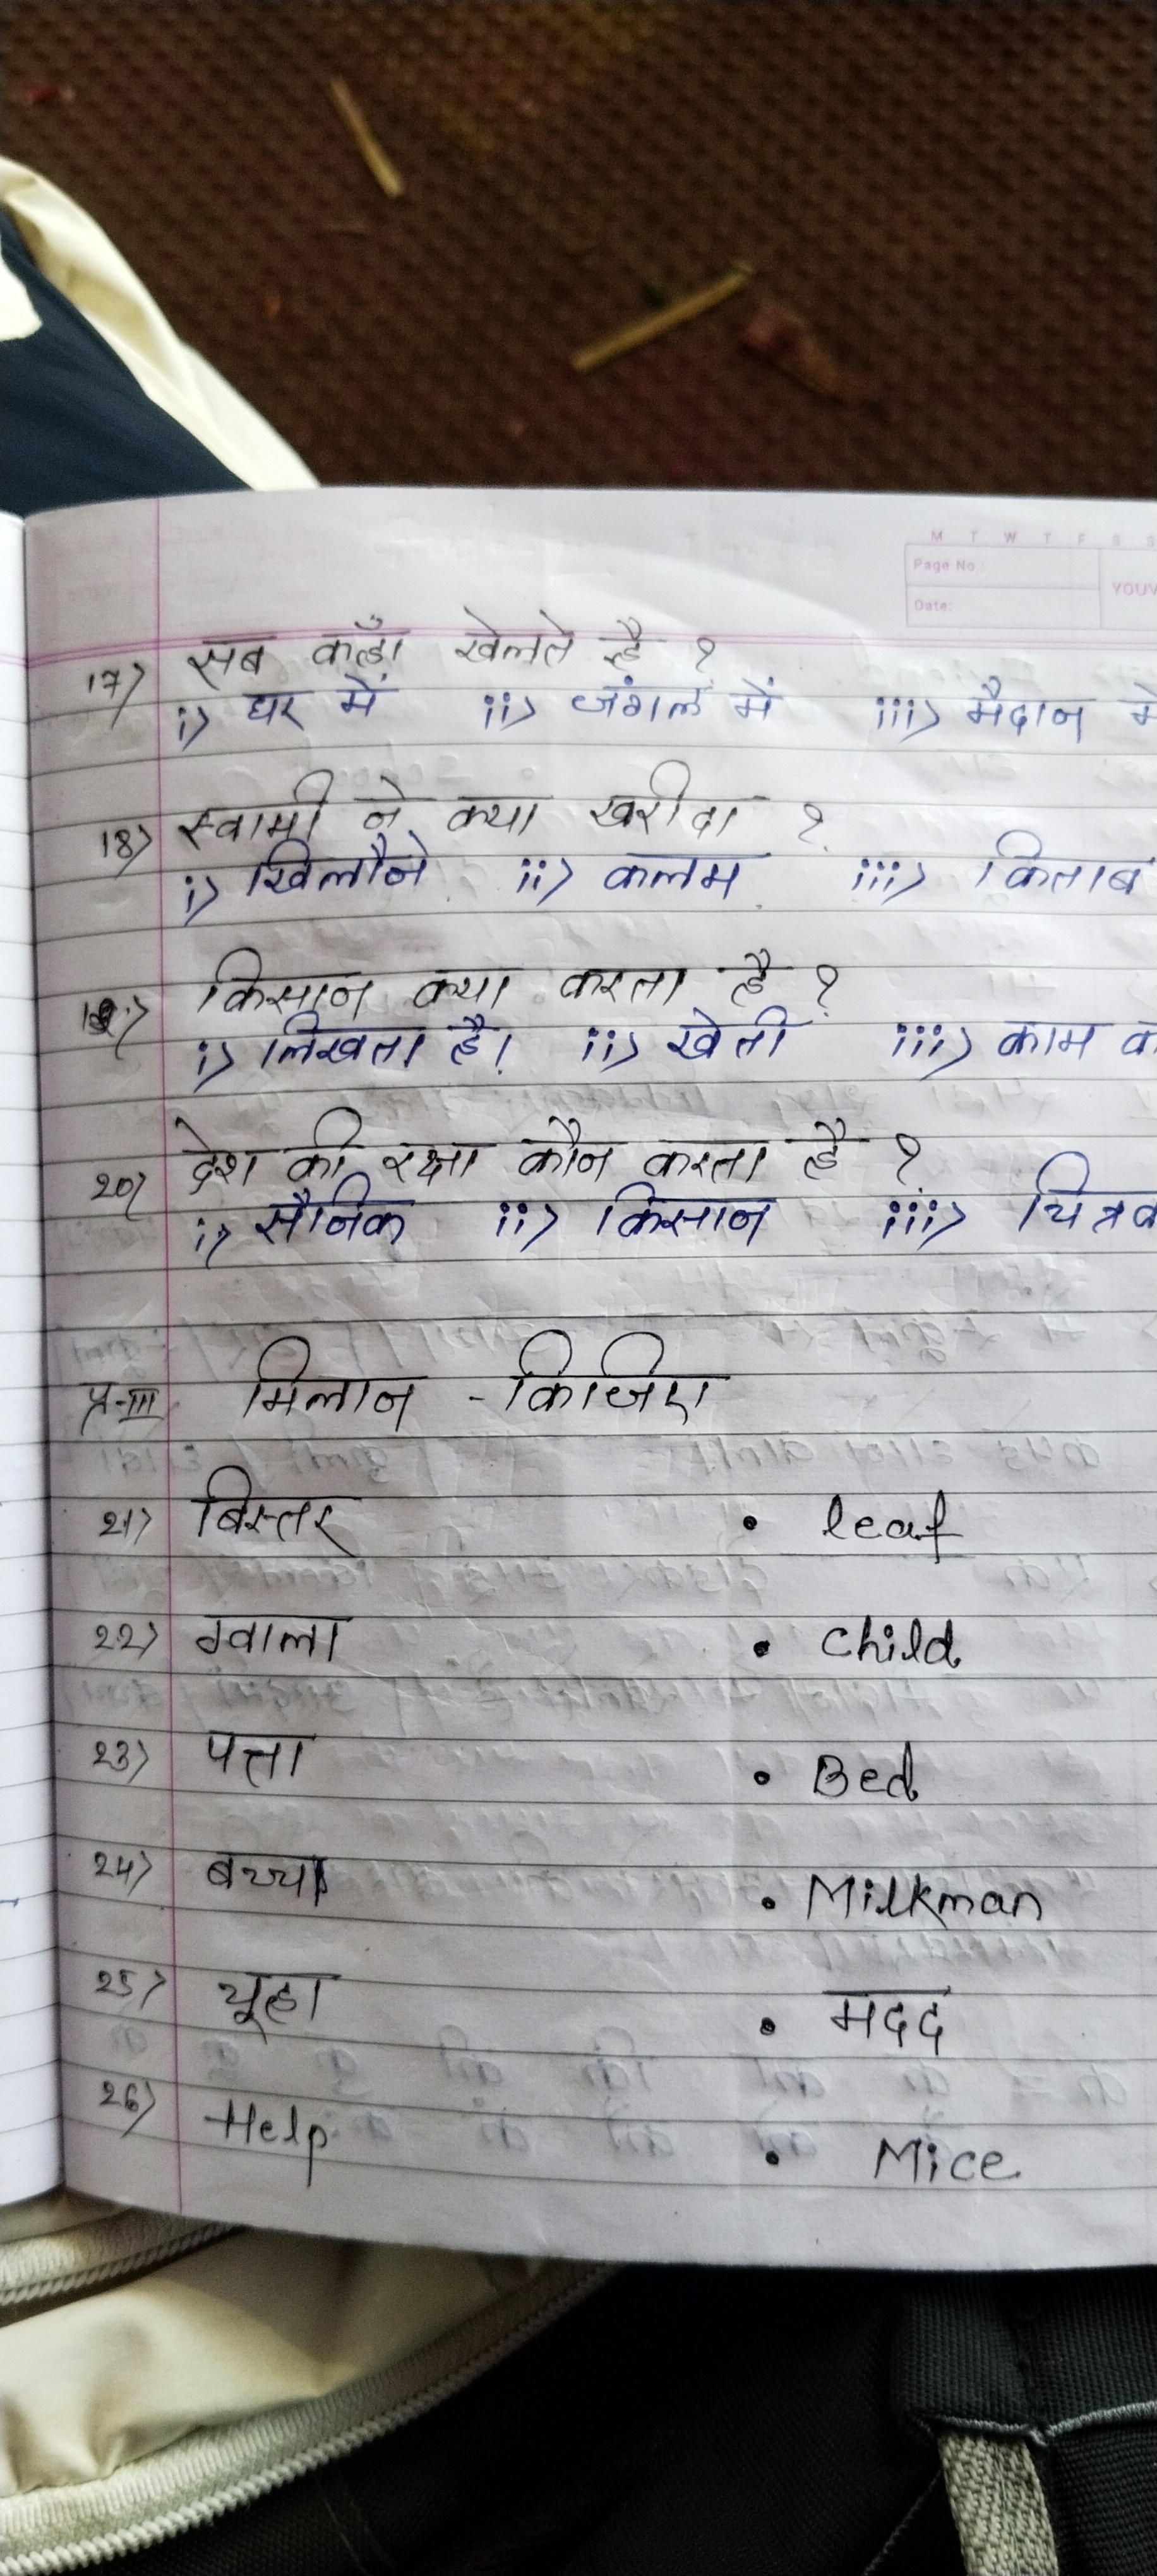 M T W T F S S
Page No.:
Date:
YOUV
17) सब कहाँ खेलते है ?
i) घर में ii) जंगल में iii) मैदान में
18) स्वामी ने क्या खरीदा ?
i) खिलौने ii) कलम iii) किताब
19) किसान क्या करता है ?
i) लिखता है। ii) खेती iii) काम क
20) देश की रक्षा कौन करता है ?
i) सैनिक ii) किसान iii) चित्रक
प्र-III मिलान - किजिए
21) बिस्तर • leaf
22) ग्वाला • child
23) पत्ता • Bed
24) बच्चा • Milkman
25) चूहा • मदद
26) Help • Mice